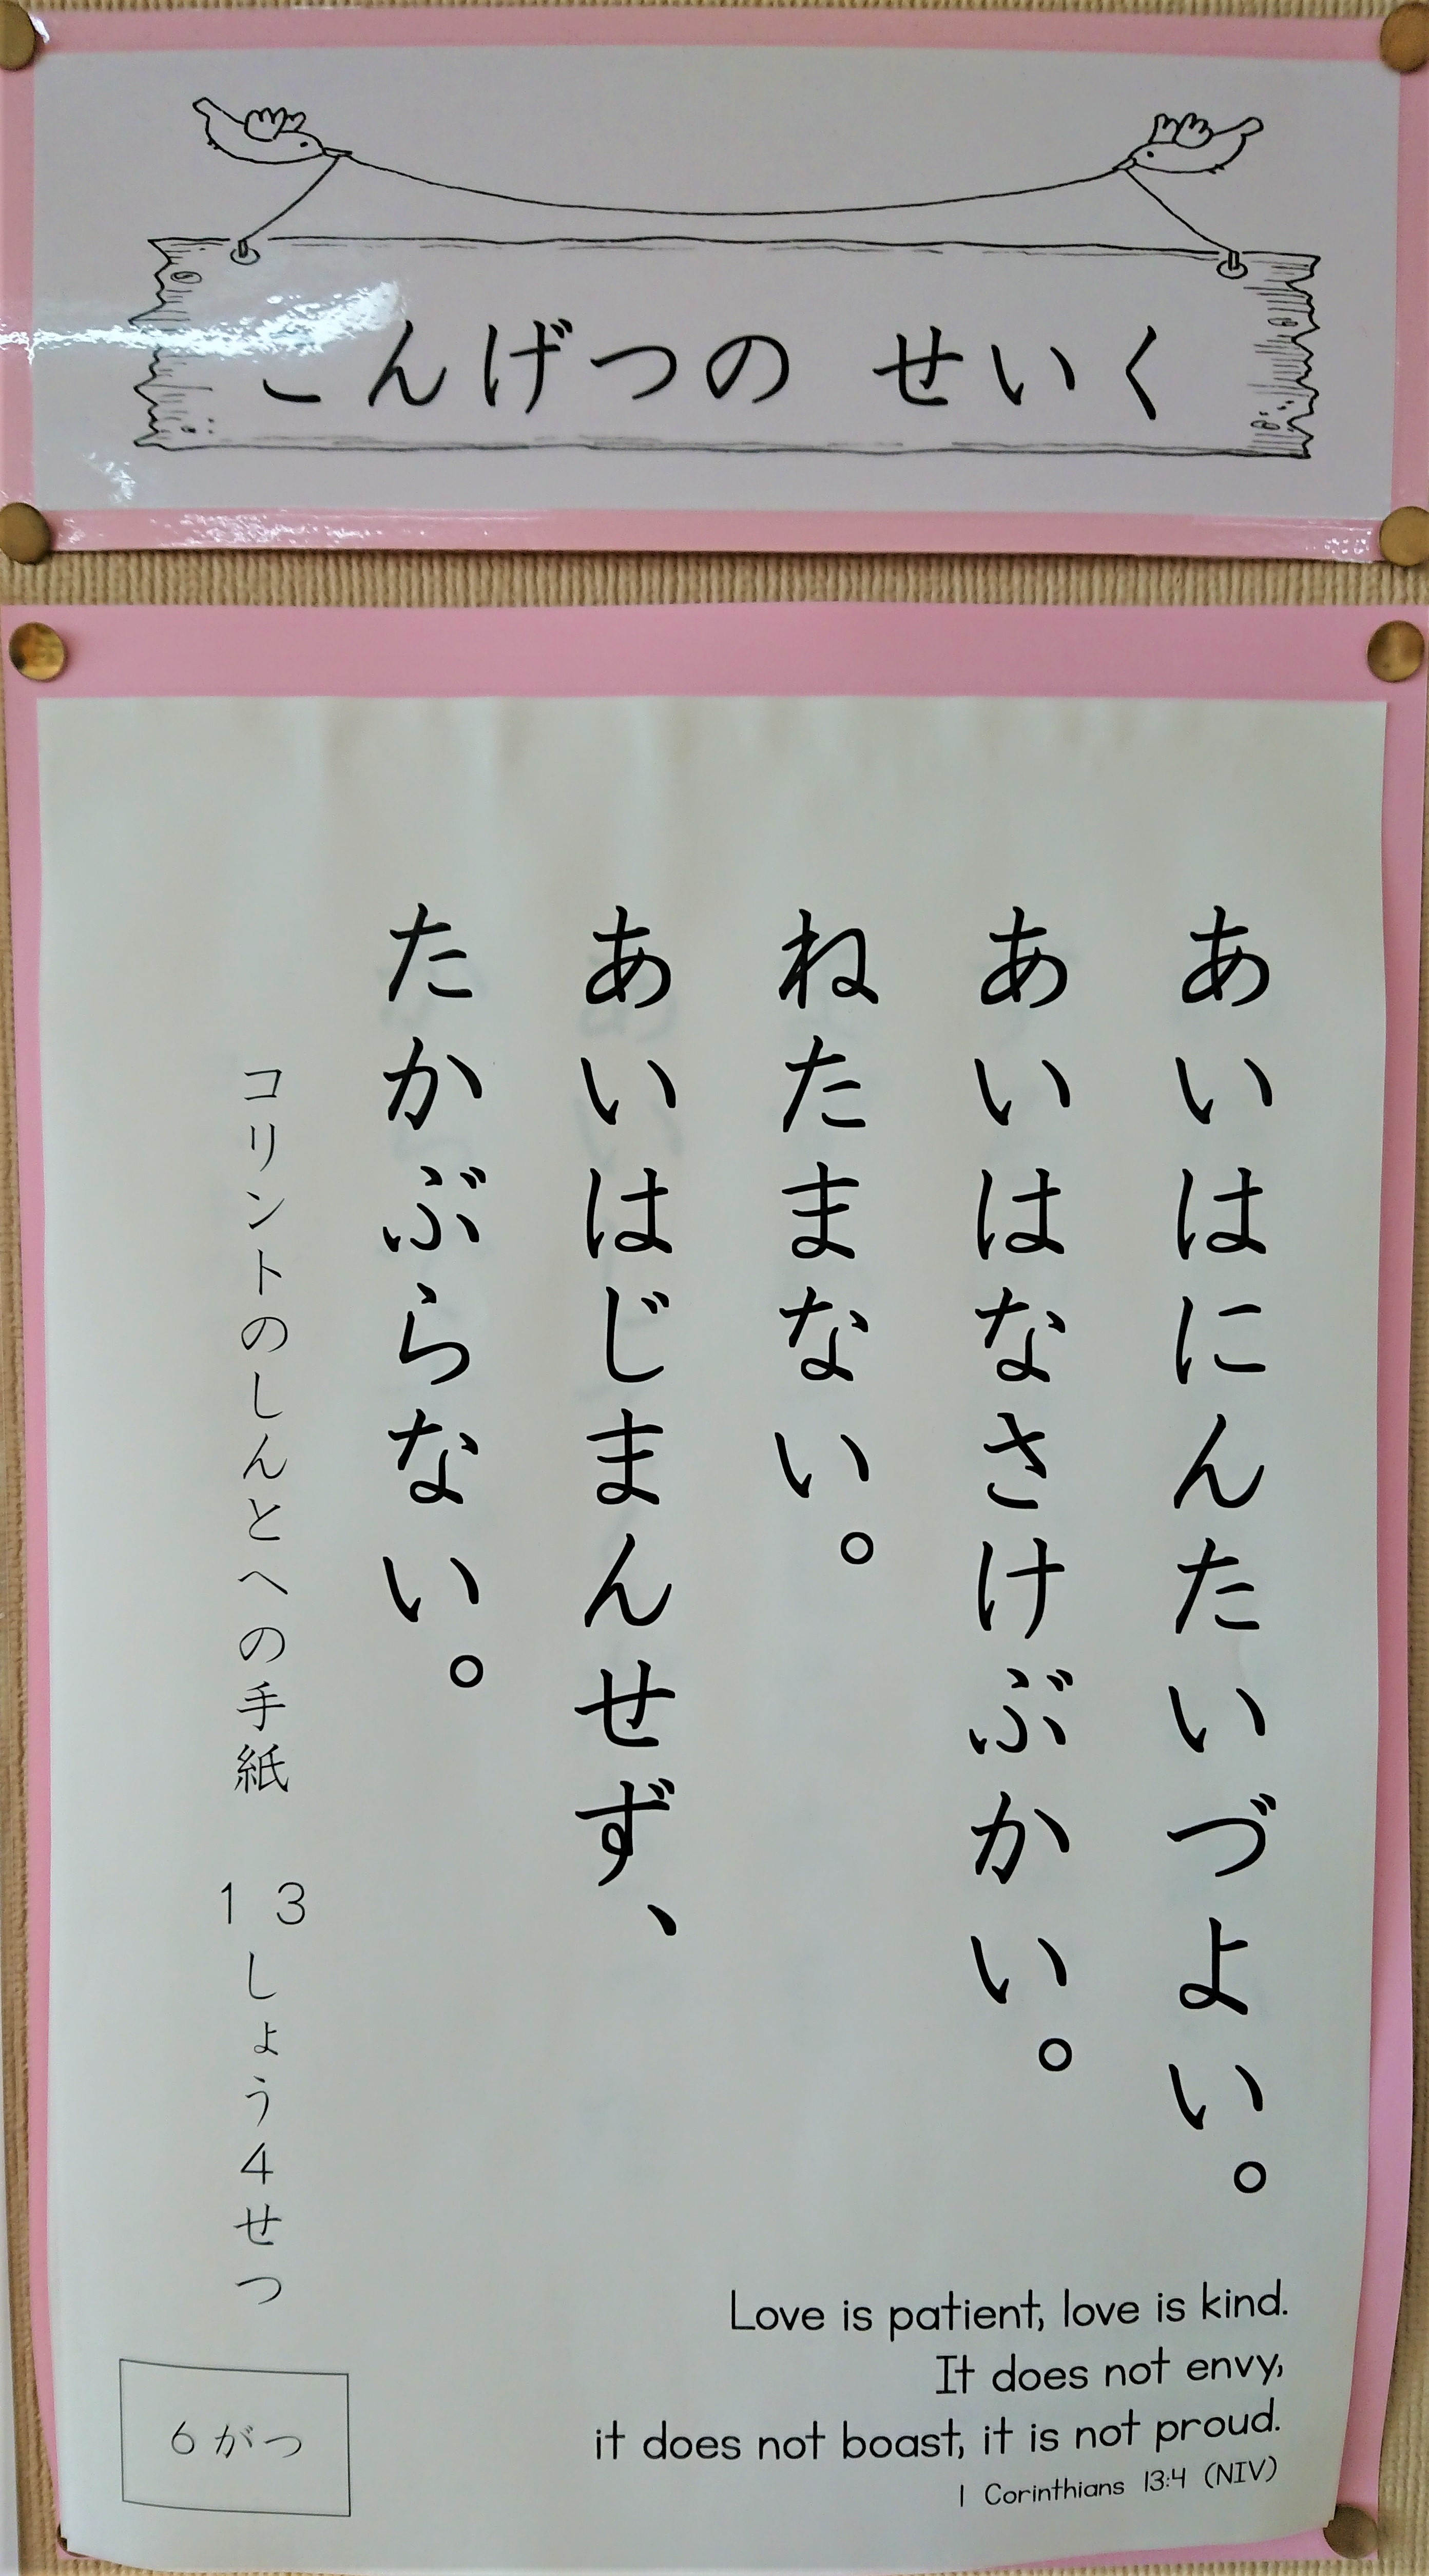 こんげつの せいく
あいはにんたいづよい。
あいはなさけぶかい。
ねたまない。
あいはじまんせず、
たかぶらない。
コリントのしんとへの手紙 13しょう4せつ
6がつ
Love is patient, love is kind.
It does not envy,
it does not boast, it is not proud.
1 Corinthians 13:4 (NIV)